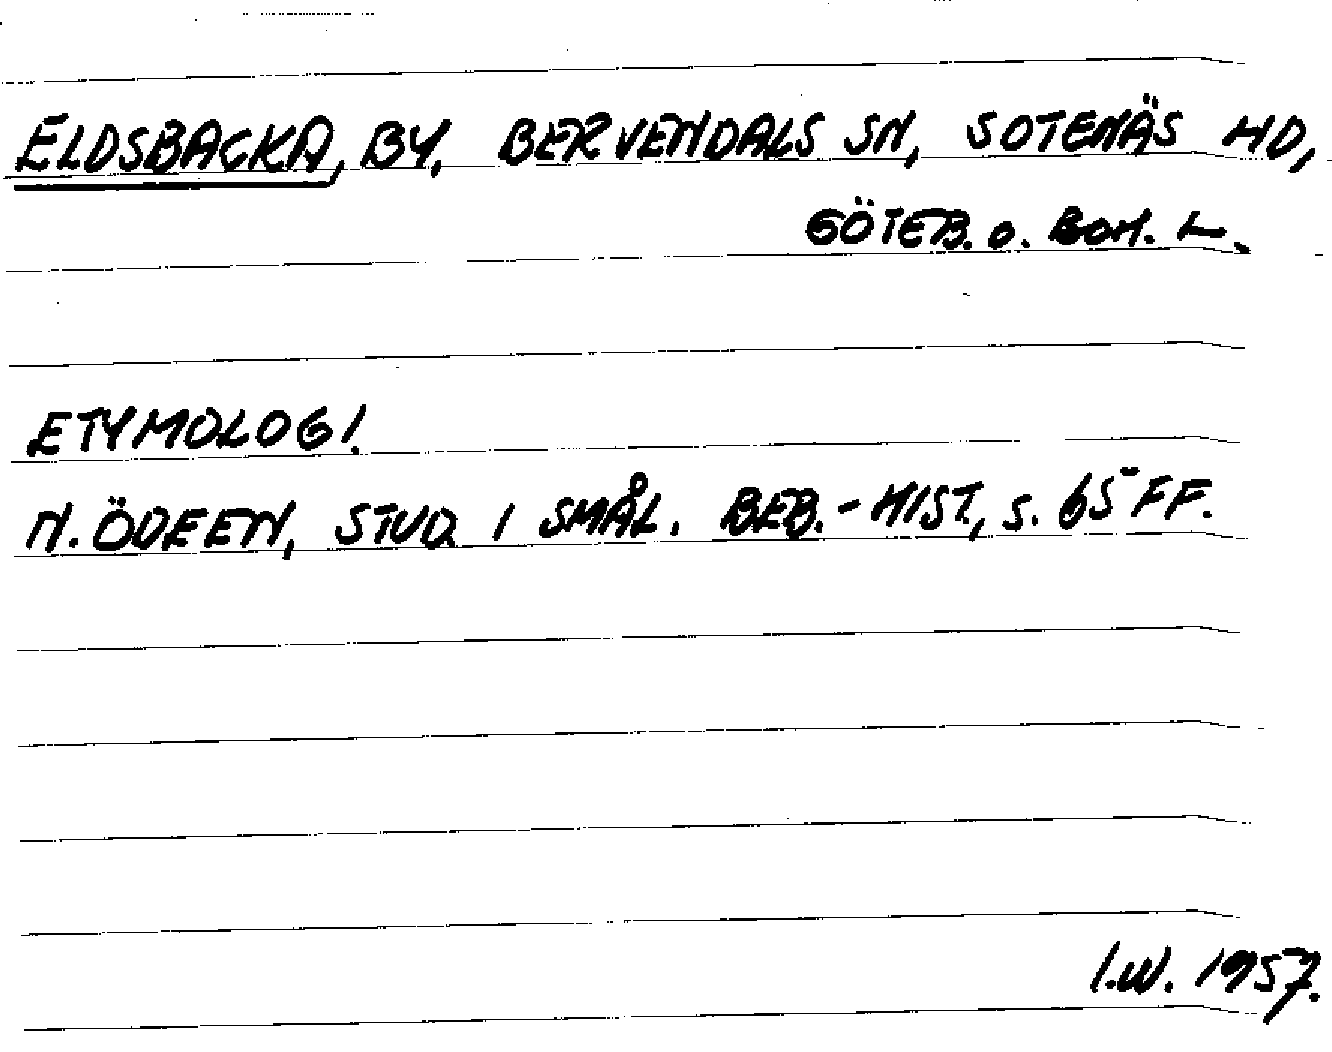 ELDSBACKA, BY, BERVENDALS SN, SOTENÄS HD,
GÖTEB. o. BOH. L.
ETYMOLOGI.
N. ÖDEEN, STUD. I SMÅL. BEB.-HIST., S. 65 FF.
I.W. 1957.